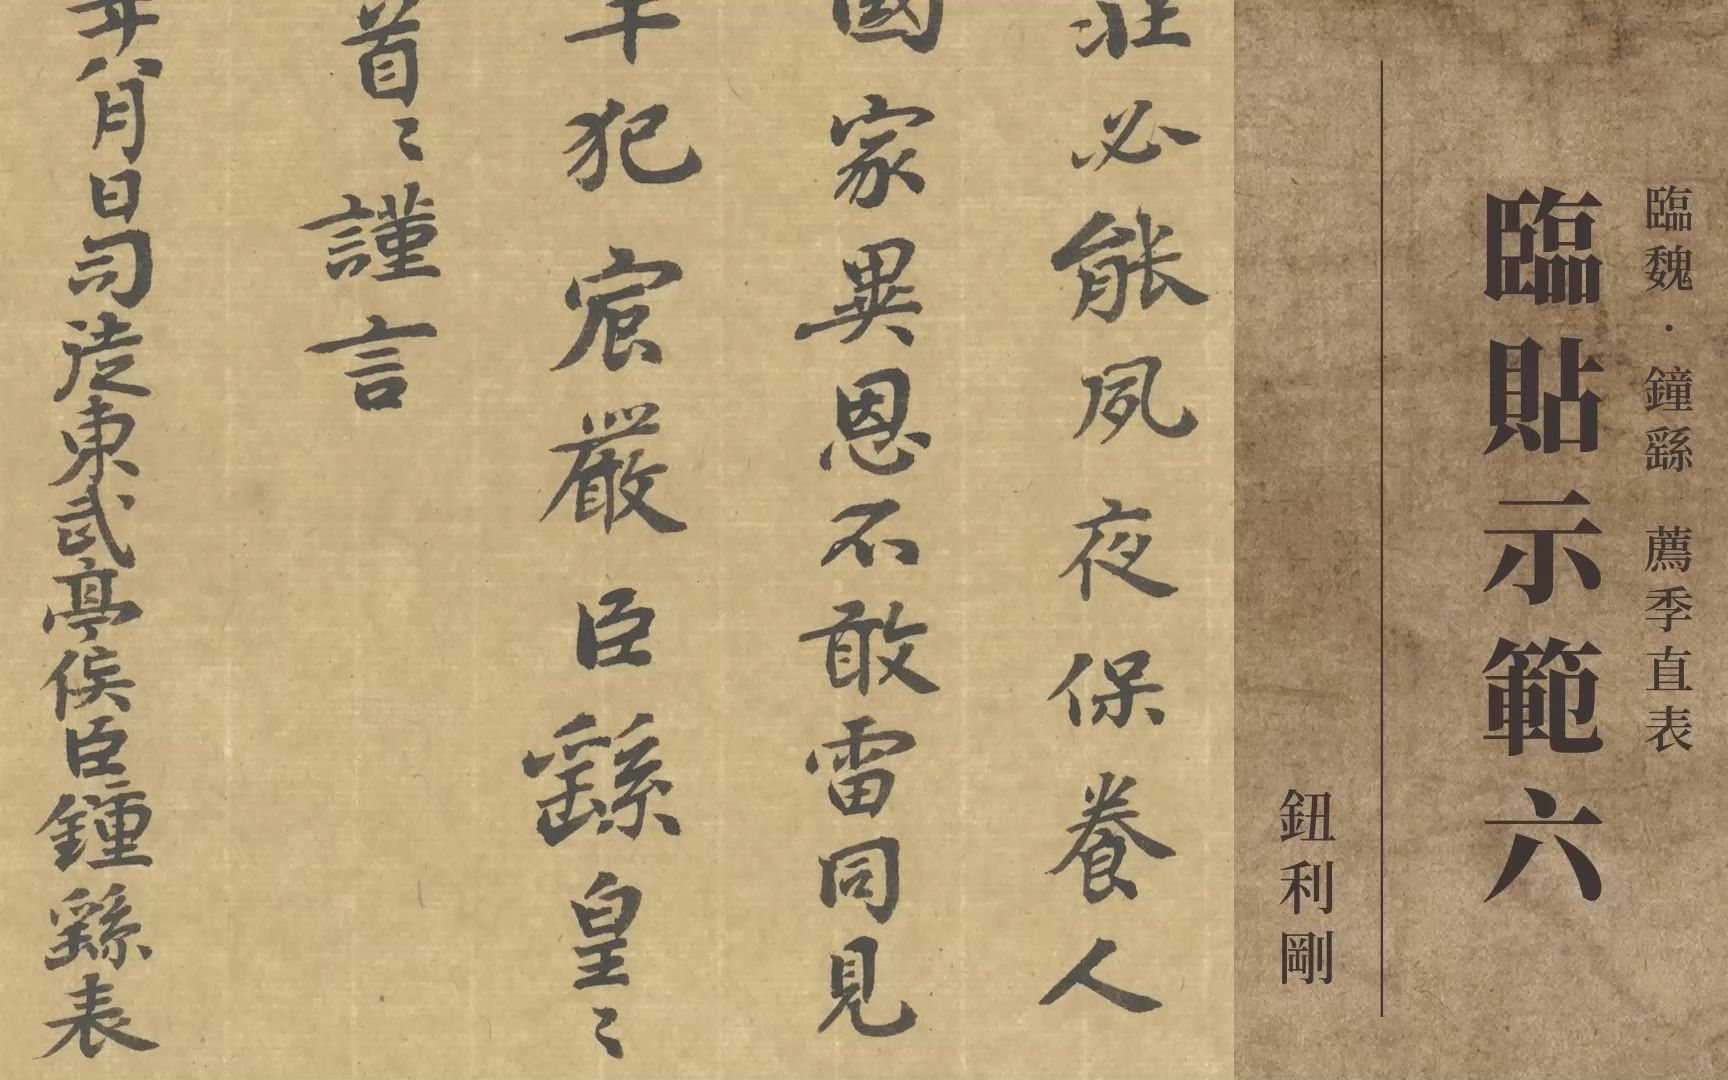 臨魏·鐘繇 薦季直表
臨貼示範六
鈕利剛
壯必能夙夜保養人
國家異恩不敢雷同見
干犯宸嚴臣繇皇〻
首〻謹言
年八月日司徒東武亭侯臣鍾繇表